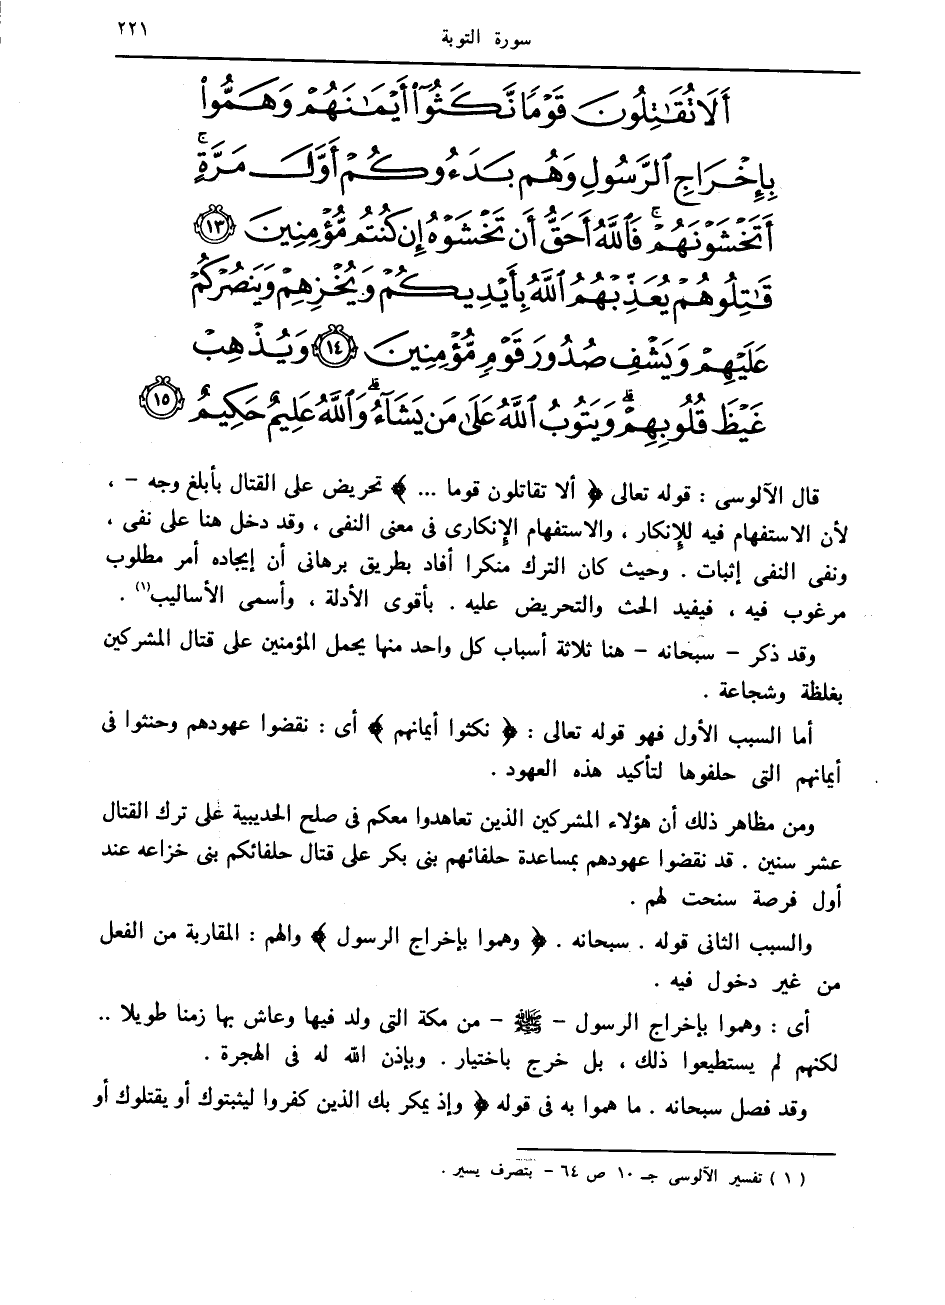 سورة التوبة
٢٢١
أَلَا تُقَٰتِلُونَ قَوْمًا نَّكَثُوٓا۟ أَيْمَٰنَهُمْ وَهَمُّوا۟
بِإِخْرَاجِ ٱلرَّسُولِ وَهُم بَدَءُوكُمْ أَوَّلَ مَرَّةٍ ۚ
أَتَخْشَوْنَهُمْ ۚ فَٱللَّهُ أَحَقُّ أَن تَخْشَوْهُ إِن كُنتُم مُّؤْمِنِينَ ١٣
قَٰتِلُوهُمْ يُعَذِّبْهُمُ ٱللَّهُ بِأَيْدِيكُمْ وَيُخْزِهِمْ وَيَنصُرْكُمْ
عَلَيْهِمْ وَيَشْفِ صُدُورَ قَوْمٍ مُّؤْمِنِينَ ١٤ وَيُذْهِبْ
غَيْظَ قُلُوبِهِمْ ۗ وَيَتُوبُ ٱللَّهُ عَلَىٰ مَن يَشَآءُ ۗ وَٱللَّهُ عَلِيمٌ حَكِيمٌ ١٥
قال الآلوسى : قوله تعالى ﴿ ألا تقاتلون قوما ... ﴾ تحريض على القتال بأبلغ وجه – ،
لأن الاستفهام فيه للإنكار ، والاستفهام الإنكارى فى معنى النفى ، وقد دخل هنا على نفى ،
ونفى النفى إثبات . وحيث كان الترك منكرا أفاد بطريق برهانى أن إيجاده أمر مطلوب
مرغوب فيه ، فيفيد الحث والتحريض عليه . بأقوى الأدلة ، وأسمى الأساليب(١) .
وقد ذكر – سبحانه – هنا ثلاثة أسباب كل واحد منها يحمل المؤمنين على قتال المشركين
بغلظة وشجاعة .
أما السبب الأول فهو قوله تعالى : ﴿ نكثوا أيمانهم ﴾ أى : نقضوا عهودهم وحنثوا فى
أيمانهم التى حلفوها لتأكيد هذه العهود .
ومن مظاهر ذلك أن هؤلاء المشركين الذين تعاهدوا معكم فى صلح الحديبية على ترك القتال
عشر سنين . قد نقضوا عهودهم بمساعدة حلفائهم بنى بكر على قتال حلفائكم بنى خزاعه عند
أول فرصة سنحت لهم .
والسبب الثانى قوله . سبحانه . ﴿ وهموا بإخراج الرسول ﴾ والهم : المقاربة من الفعل
من غير دخول فيه .
أى : وهموا بإخراج الرسول – ﷺ – من مكة التى ولد فيها وعاش بها زمنا طويلا ..
لكنهم لم يستطيعوا ذلك ، بل خرج باختيار . وبإذن الله له فى الهجرة .
وقد فصل سبحانه . ما هموا به فى قوله ﴿ وإذ يمكر بك الذين كفروا ليثبتوك أو يقتلوك أو
( ١ ) تفسير الآلوسى جـ ١٠ ص ٦٤ – بتصرف يسير .